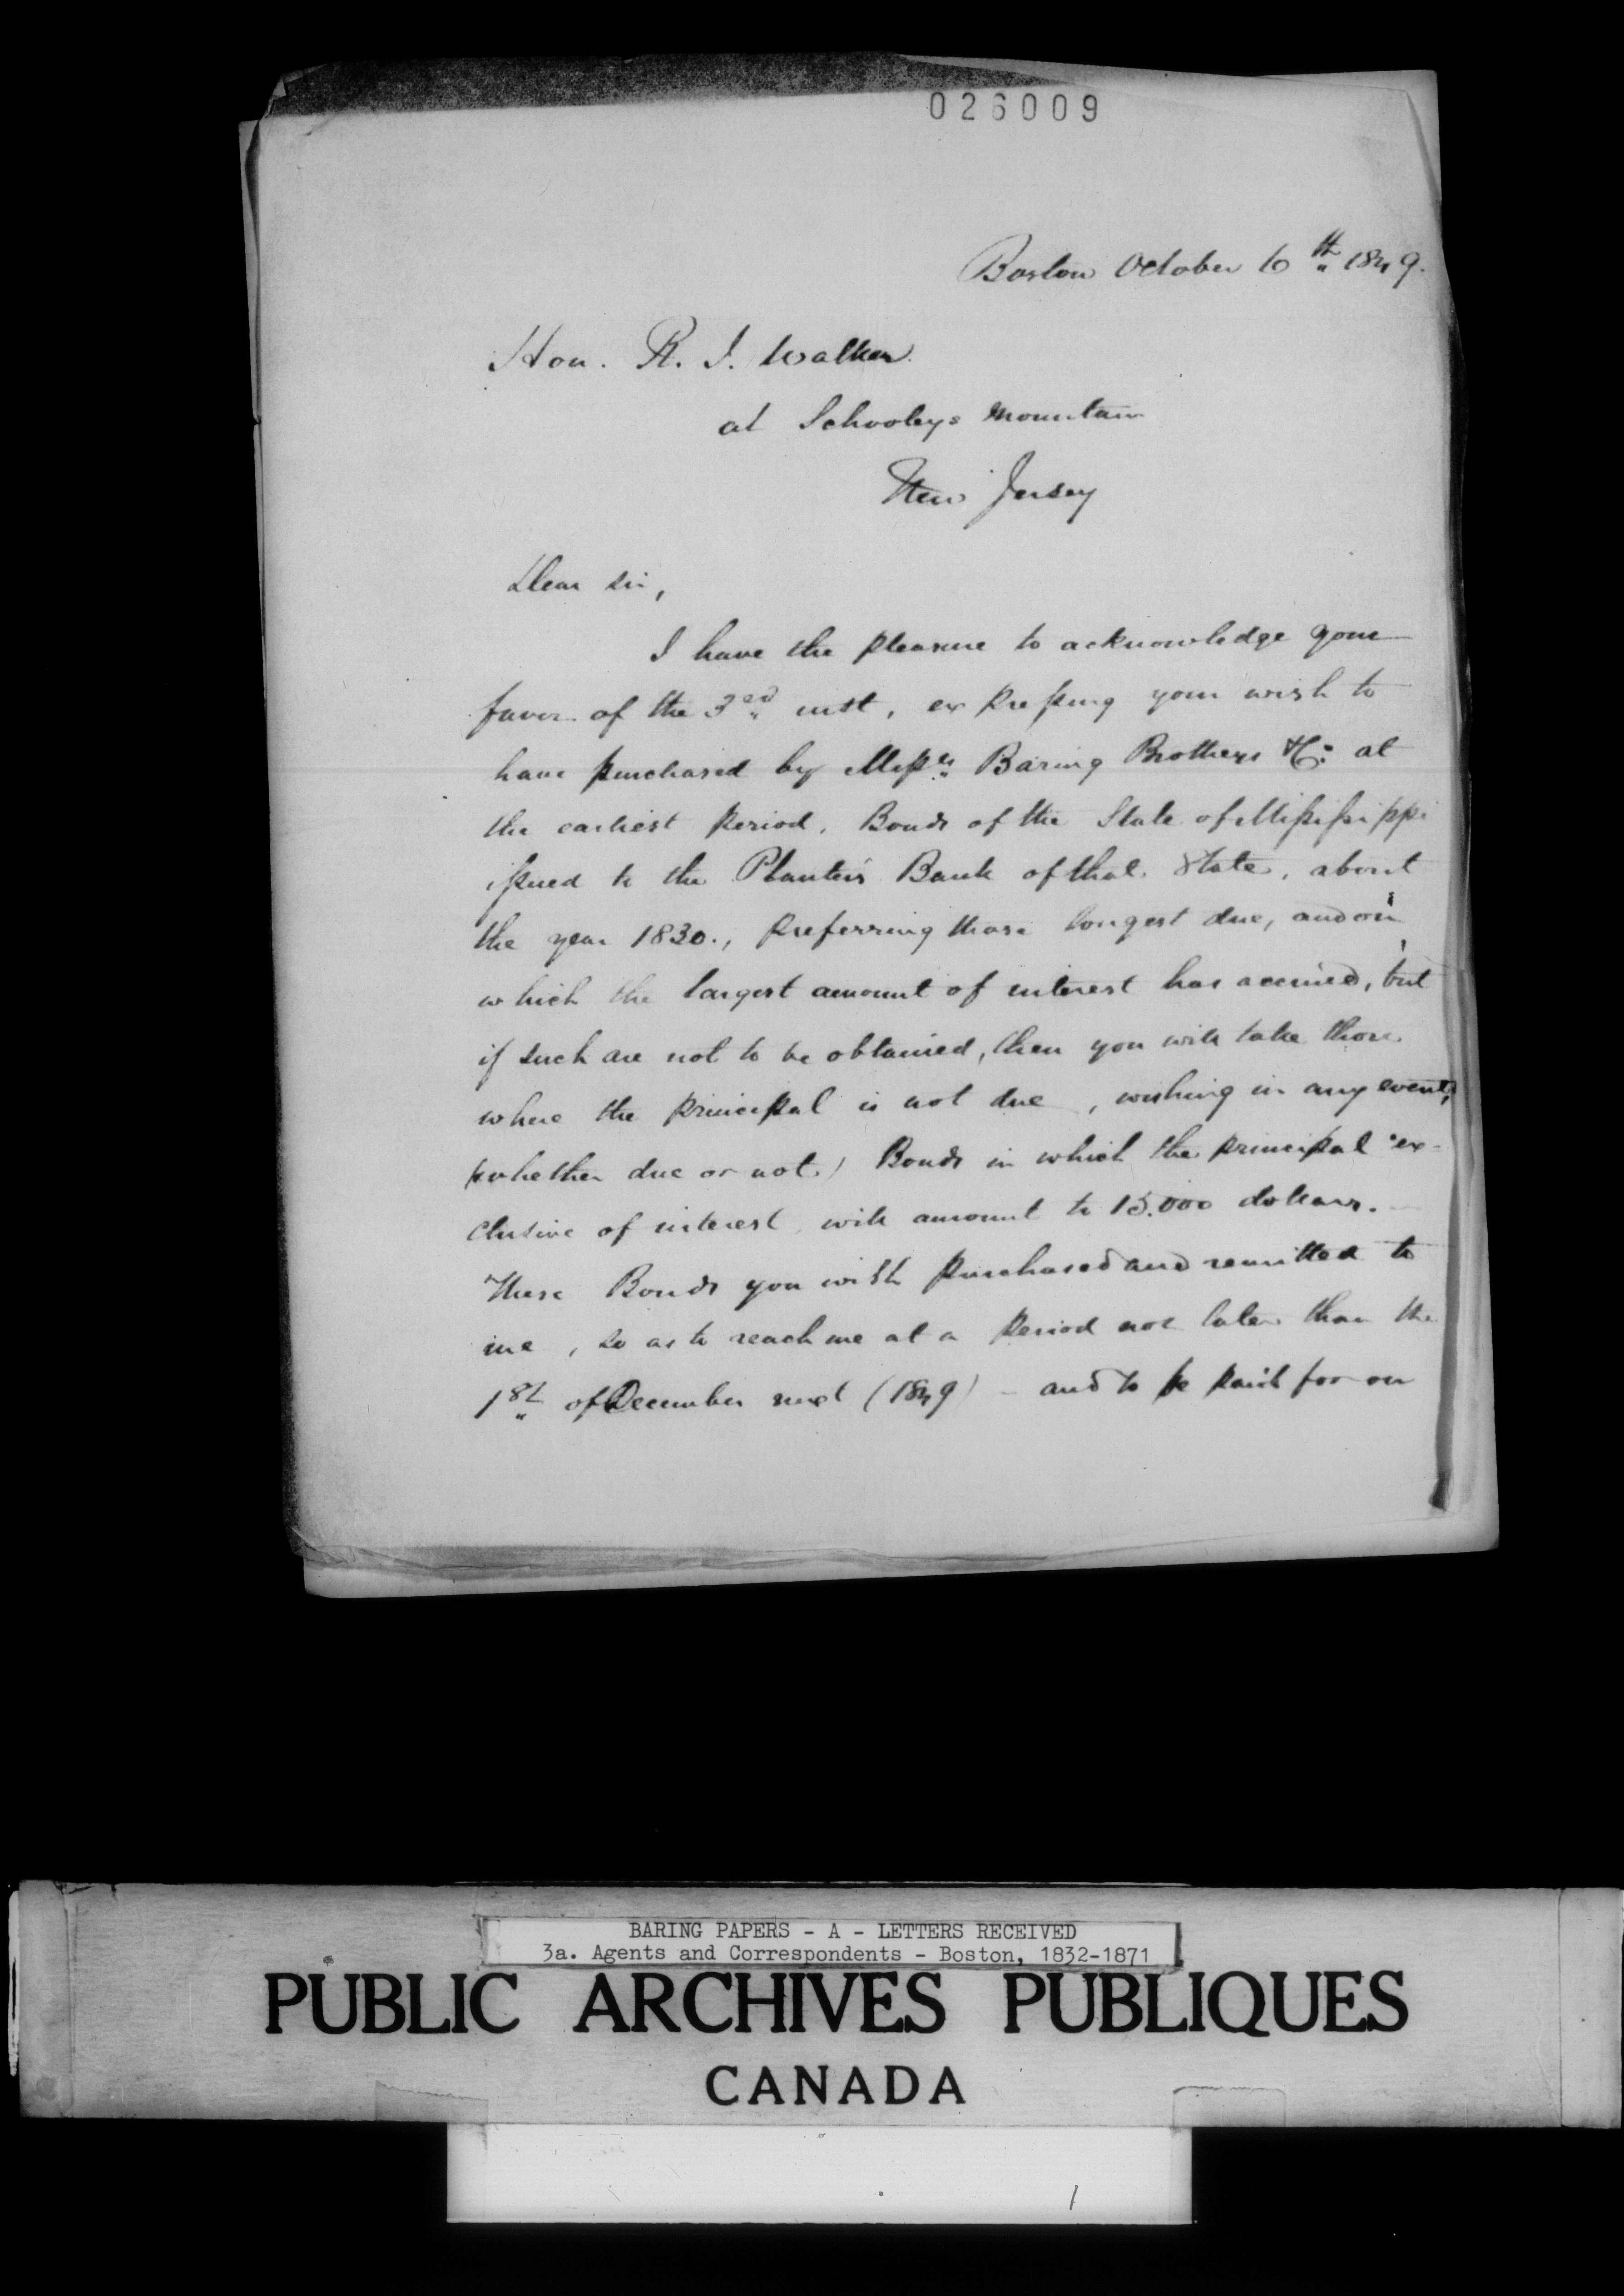 026009
Boston October 6th 1849.
Hon. R. J. Walker.
at Schooleys Mountain
New Jersey
Dear Sir,
I have the pleasure to acknowledge your
favor of the 3rd inst, expressing your wish to
have purchased by Messrs Baring Brothers & Co: at
the earliest period, Bonds of the State of Mississippi
issued to the Planters Bank of that State, about
the year 1830., preferring those longest due, and on
which the largest amount of interest has accrued, but
if such are not to be obtained, then you will take those
where the principal is not due, wishing in any event,
(whether due or not) Bonds in which the principal ex-
clusive of interest will amount to 15.000 dollars.
These Bonds you wish purchased and remitted to
me, so as to reach me at a period not later than the
1st of December next (1849) - and to be paid for on
BARING PAPERS - A - LETTERS RECEIVED
3a. Agents and Correspondents - Boston, 1832-1871
PUBLIC ARCHIVES PUBLIQUES
CANADA